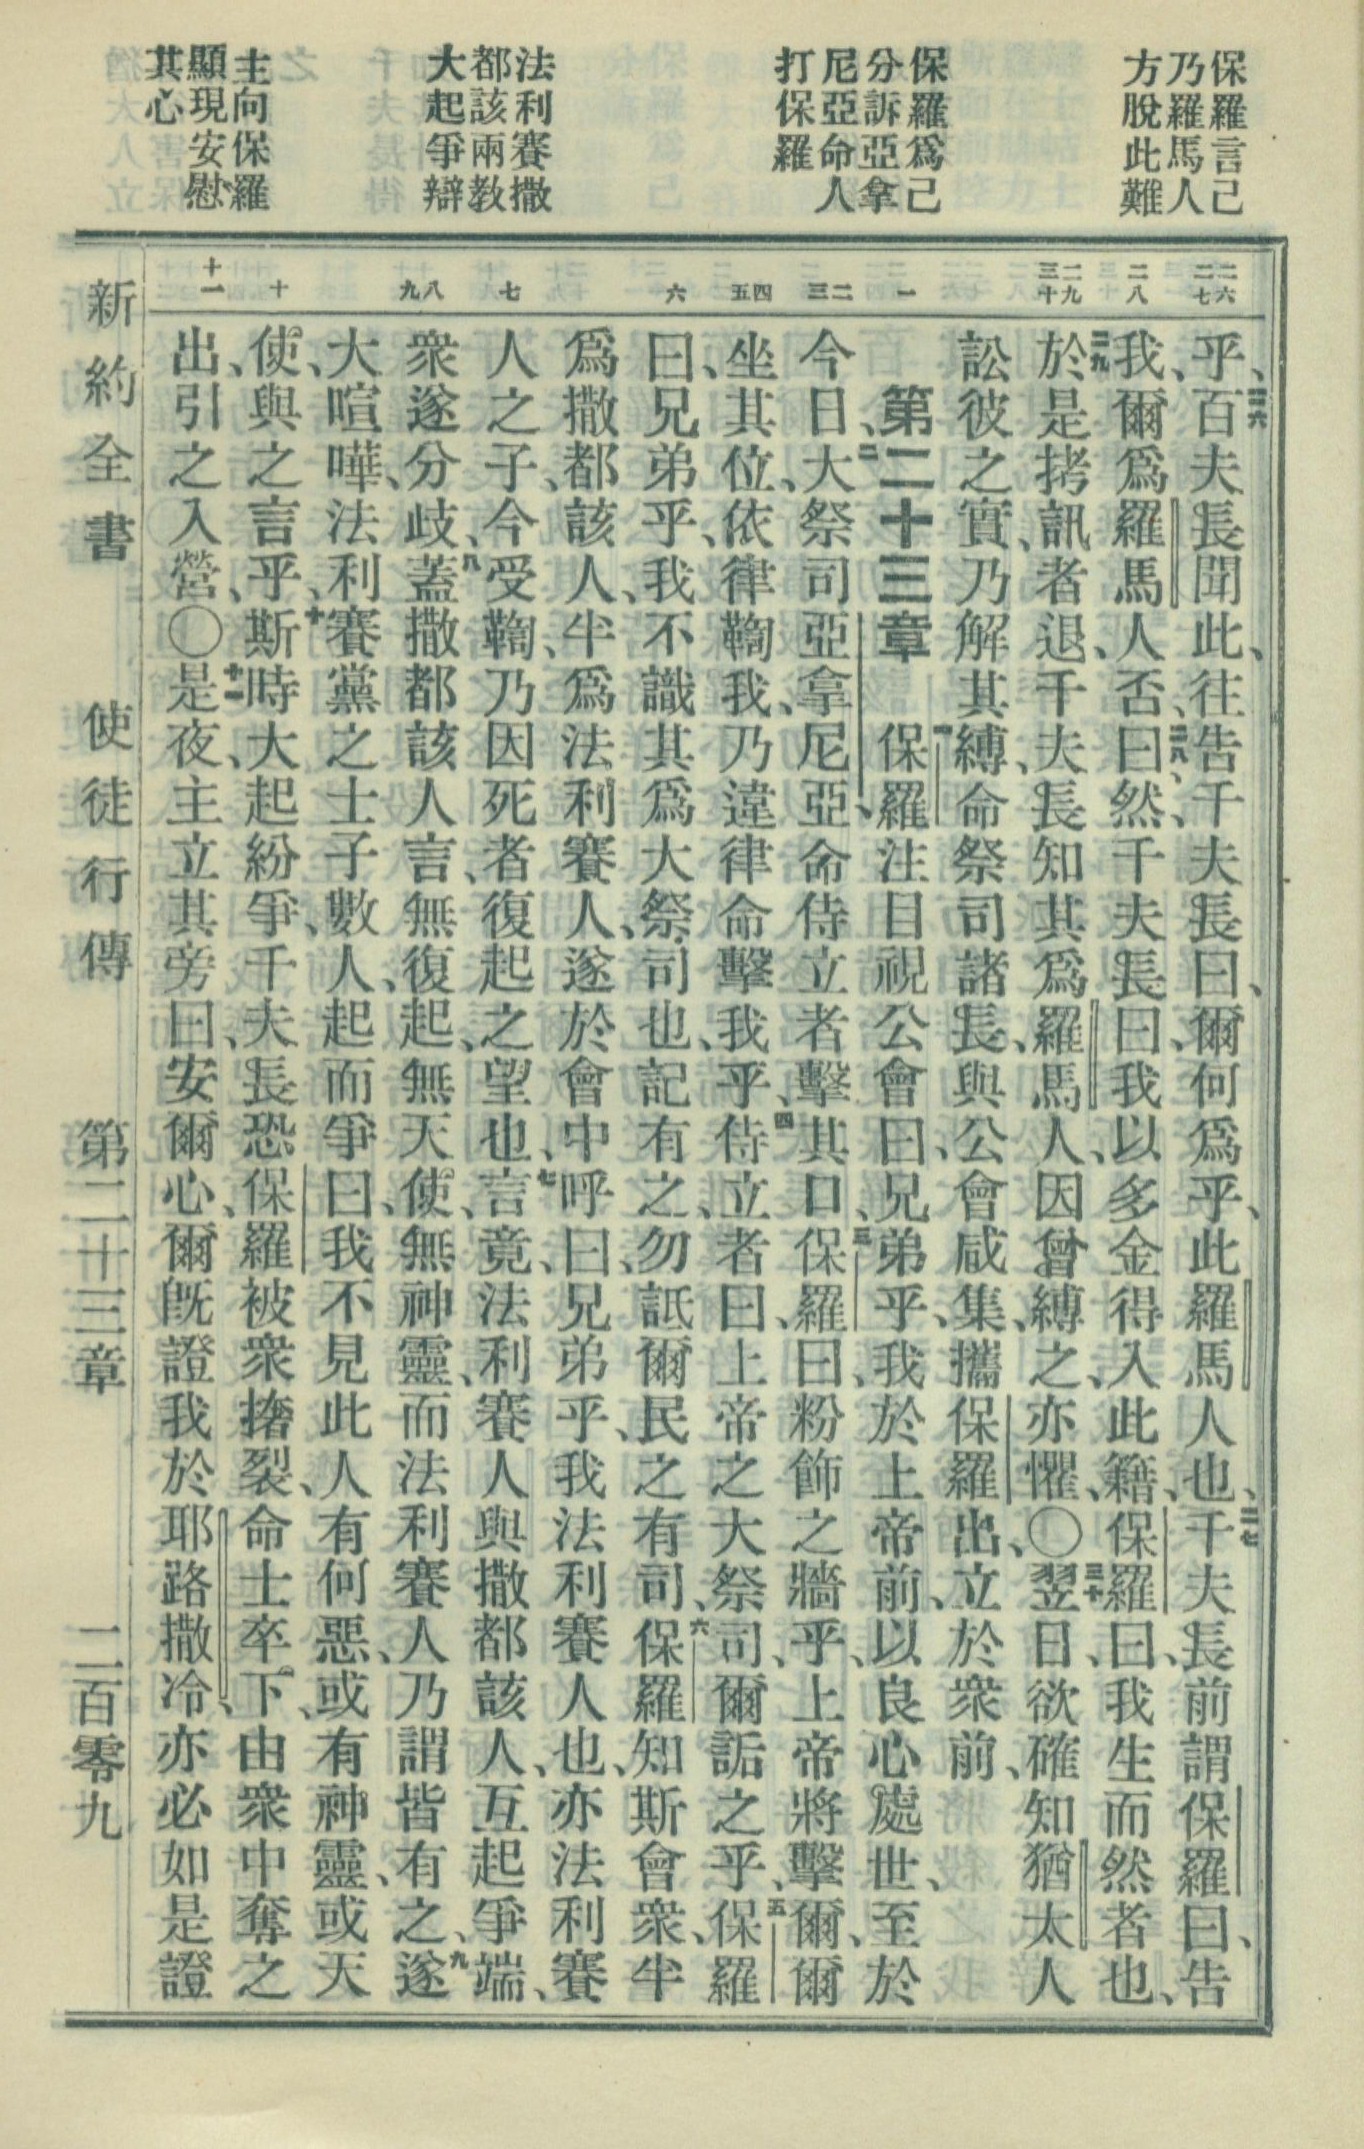 保羅言己
乃羅馬人
方脫此難
保羅爲己
分訴亞拿
尼亞命人
打保羅
法利賽撒
都該兩教
大起爭辯
主向保羅
顯現安慰
其心
二六 二七
二八
二九 三十
一
二 三
四 五
六
七
八 九
十
十一
乎、二六百夫長聞此、往告千夫長曰、爾何爲乎、此羅馬人也、二七千夫長前謂保羅曰、告
我、爾爲羅馬人否、曰然、二八千夫長曰、我以多金得入此籍、保羅曰、我生而然者也、
二九於是拷訊者退、千夫長知其爲羅馬人、因曾縛之、亦懼、〇三十翌日、欲確知猶太人
訟彼之實、乃解其縛、命祭司諸長、與公會咸集、攜保羅出、立於衆前、
第二十三章 一保羅注目視公會曰、兄弟乎、我於上帝前、以良心處世、至於
今日、二大祭司亞拿尼亞、命侍立者擊其口、三保羅曰、粉飾之牆乎、上帝將擊爾、爾
坐其位、依律鞫我、乃違律命擊我乎、四侍立者曰、上帝之大祭司、爾詬之乎、五保羅
曰、兄弟乎、我不識其爲大祭司也、記有之、勿詆爾民之有司、六保羅知斯會衆、半
爲撒都該人、半爲法利賽人、遂於會中呼曰、兄弟乎、我法利賽人也、亦法利賽
人之子、今受鞫、乃因死者復起之望也、七言竟、法利賽人與撒都該人、互起爭端、
衆遂分歧、八蓋撒都該人言、無復起、無天使、無神靈、而法利賽人乃謂皆有之、九遂
大喧嘩、法利賽黨之士子數人、起而爭曰、我不見此人有何惡、或有神靈、或天
使、與之言乎、十斯時大起紛爭、千夫長恐保羅被衆撦裂、命士卒下、由衆中奪之
出、引之入營、〇十一是夜、主立其旁曰、安爾心、爾既證我於耶路撒冷、亦必如是證
新約全書 使徒行傳 第二十三章 二百零九